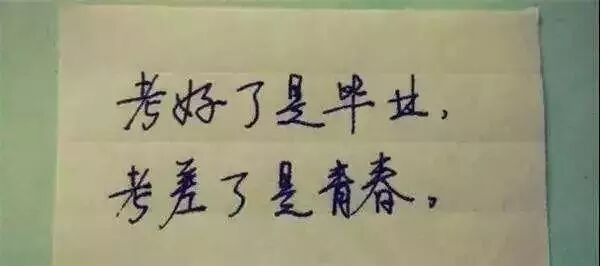 考好了是毕业，
考差了是青春。